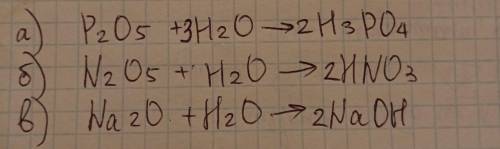 а) P2O5 +3H2O →2H3PO4
б) N2O5 + H2O →2HNO3
в) Na2O +H2O →2NaOH